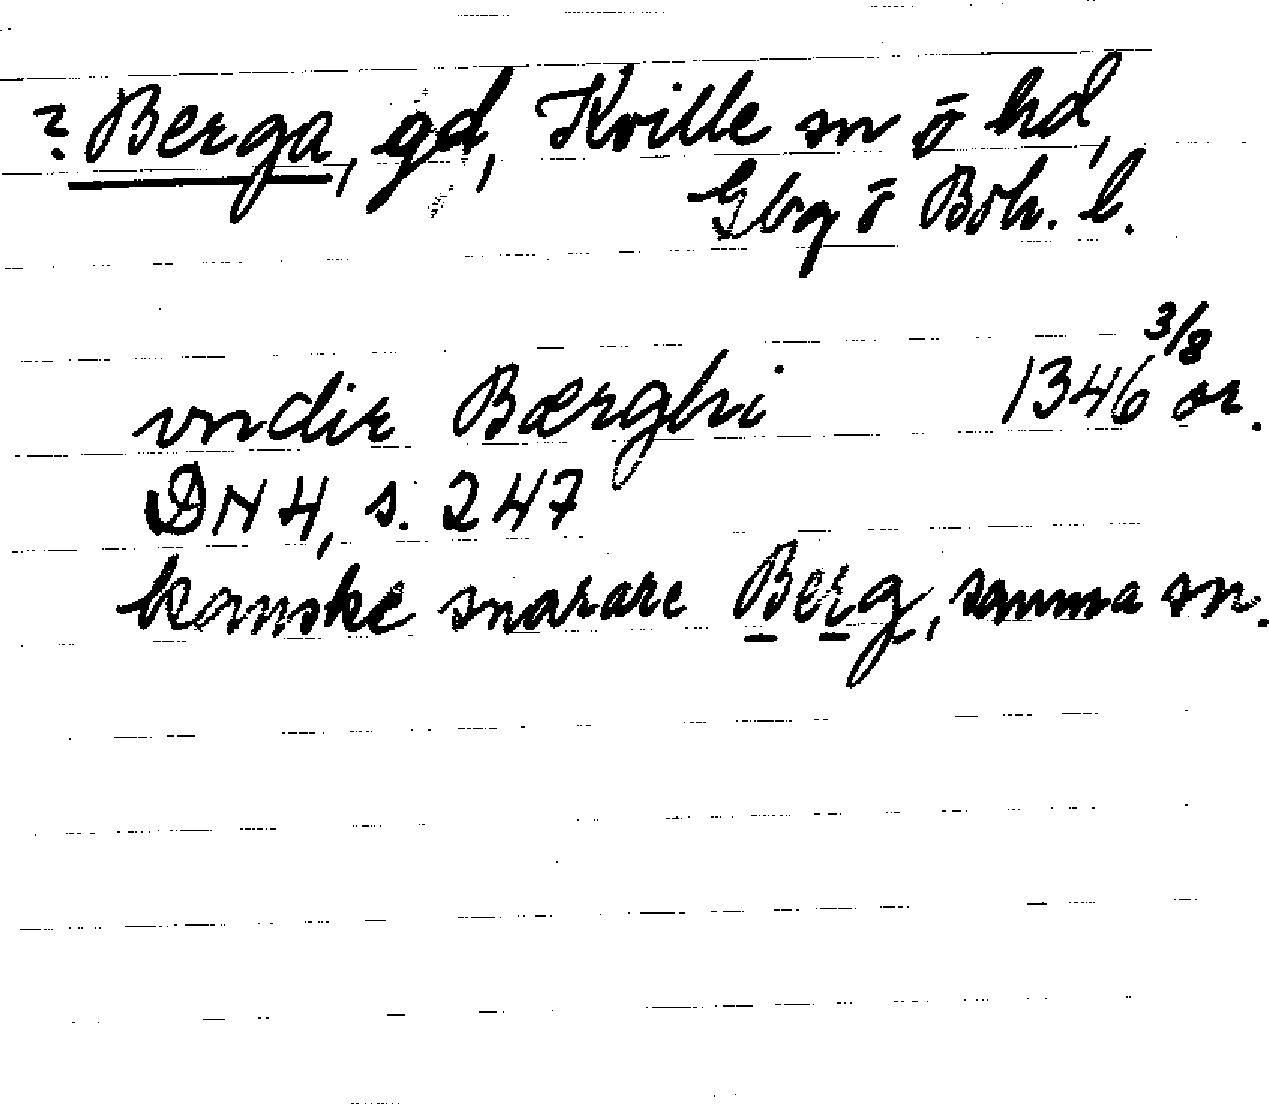 ? Berga, gd, Kville sn ō hd,
Gbg ō Boh. l.
vndir Bærghi 1346 3/8 or.
DN 4, s. 247
kanske snarare Berg, samma sn.